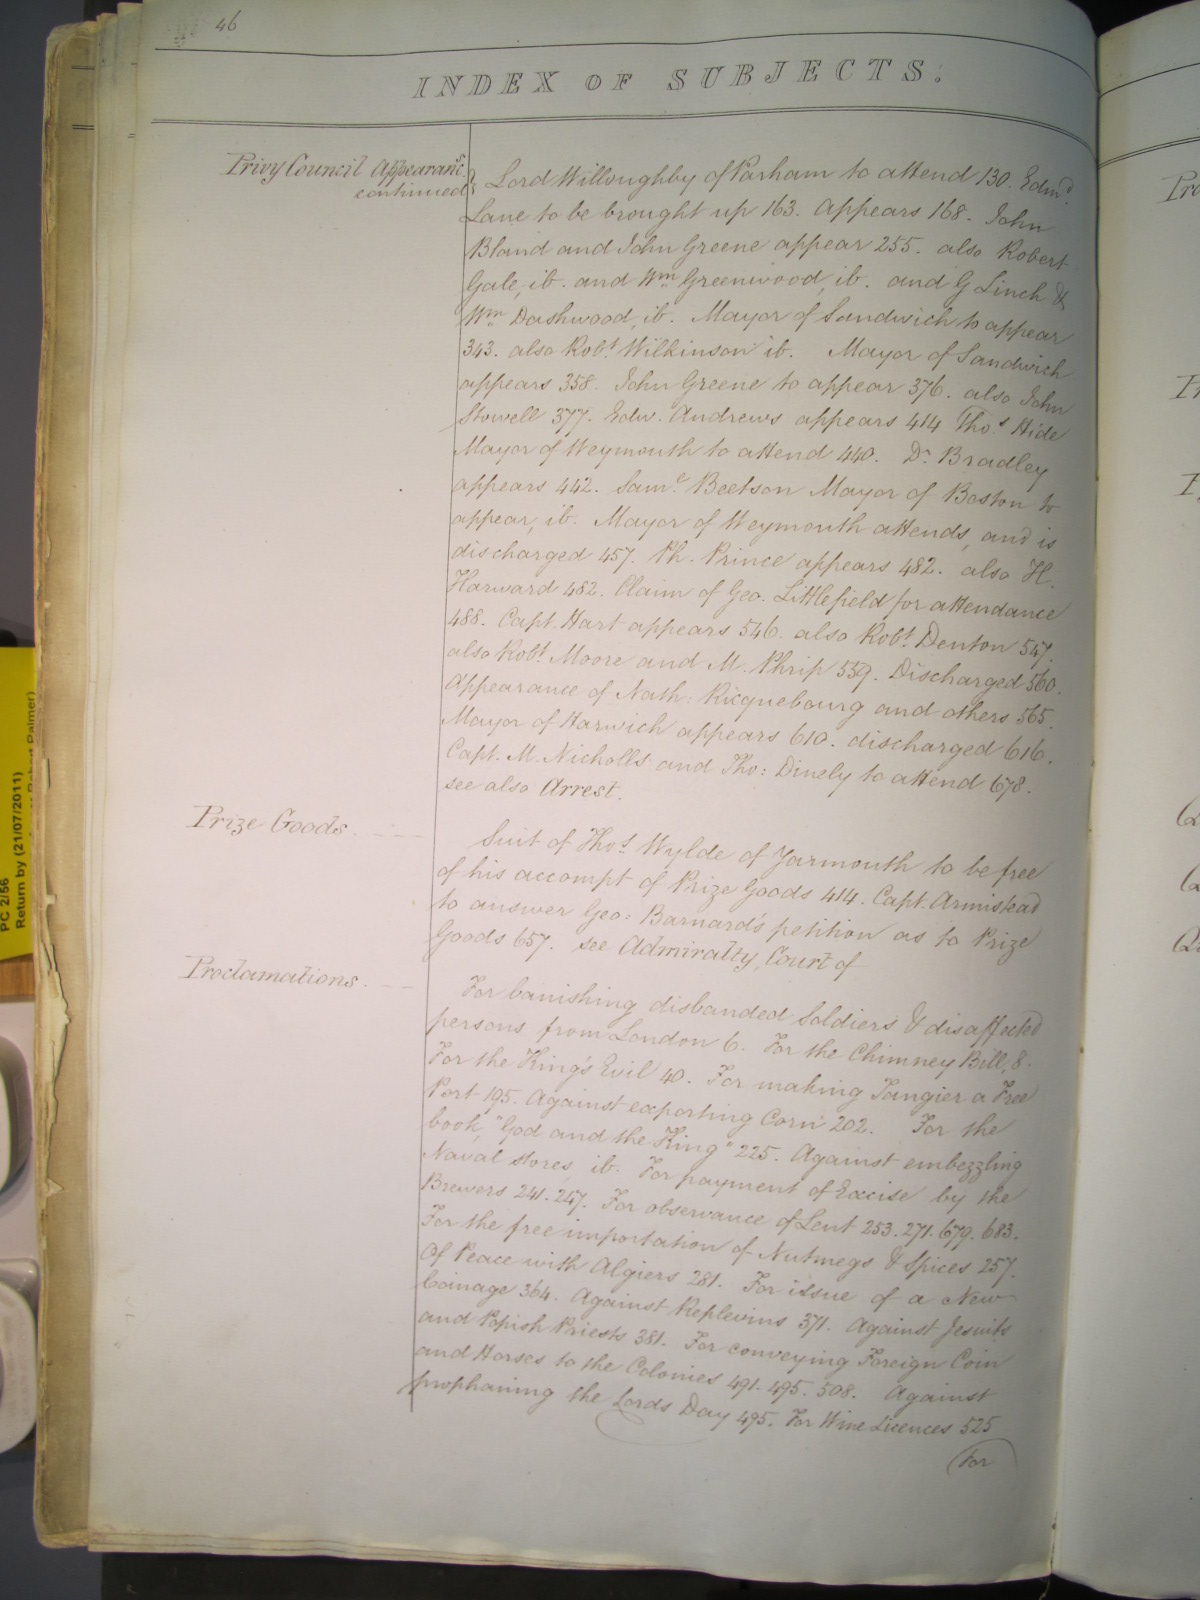 46
INDEX OF SUBJECTS.
Privy Council Appearanc.s
continued
Lord Willoughby of Parham to attend 130. Edmd.
Lane to be brought up 163. Appears 168. John
Bland and John Greene appear 255. also Robert
Gale, ib. and Wm. Greenwood, ib. and G Linch &
Wm. Dashwood, ib. Mayor of Sandwich to appear
343. also Robt. Wilkinson ib. Mayor of Sandwich
appears 358. John Greene to appear 376. also John
Stowell 377. Edw. Andrews appears 414 Thos. Hide
Mayor of Weymouth to attend 440. Dr. Bradley
appears 442. Saml. Beetson Mayor of Boston to
appear, ib. Mayor of Weymouth attends, and is
discharged 457. Ph. Prince appears 482. also H.
Harward 482. Claim of Geo. Littlefield for attendance
488. Capt. Hart appears 546. also Robt. Denton 547.
also Robt. Moore and M. Phrip 559. Discharged 560.
Appearance of Nath: Ricquebourg and others 565.
Mayor of Harwich appears 610. discharged 616.
Capt. M. Nicholls and Tho: Dinely to attend 678.
see also Arrest.
Prize Goods
Suit of Thos. Wylde of Yarmouth to be free
of his accompt of Prize Goods 414. Capt. Armistead
to answer Geo: Barnard's petition as to Prize
Goods 657. see Admiralty, Court of
Proclamations.
For banishing disbanded Soldiers & disaffected
persons from London 6. For the Chimney Bill, 8.
For the King's Evil 40. For making Tangier a Free
Port 195. Against exporting Corn 202. For the
book, "God and the King" 225. Against embezzling
Naval stores, ib. For payment of Excise by the
Brewers 241. 247. For observance of Lent 253. 271. 679. 683.
For the free importation of Nutmegs & Spices 257.
Of Peace with Algiers 281. For issue of a New
Coinage 364. Against Replevins 371. Against Jesuits
and Popish Priests 381. For conveying Foreign Coin
and Horses to the Colonies 491. 495. 508. Against
prophaning the Lords Day 495. For Wine Licences 525
For
PC 2/56
Return by (21/07/2011)